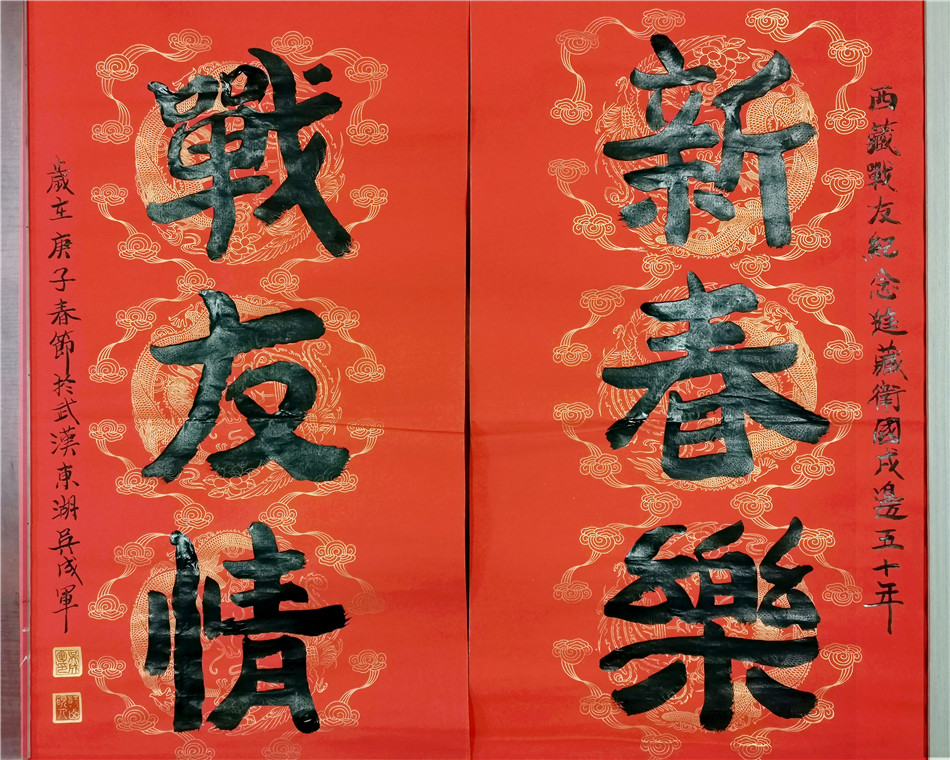 西藏戰友紀念進藏衛國戍邊五十年
新春樂
戰友情
歲在庚子春節於武漢東湖吳成軍